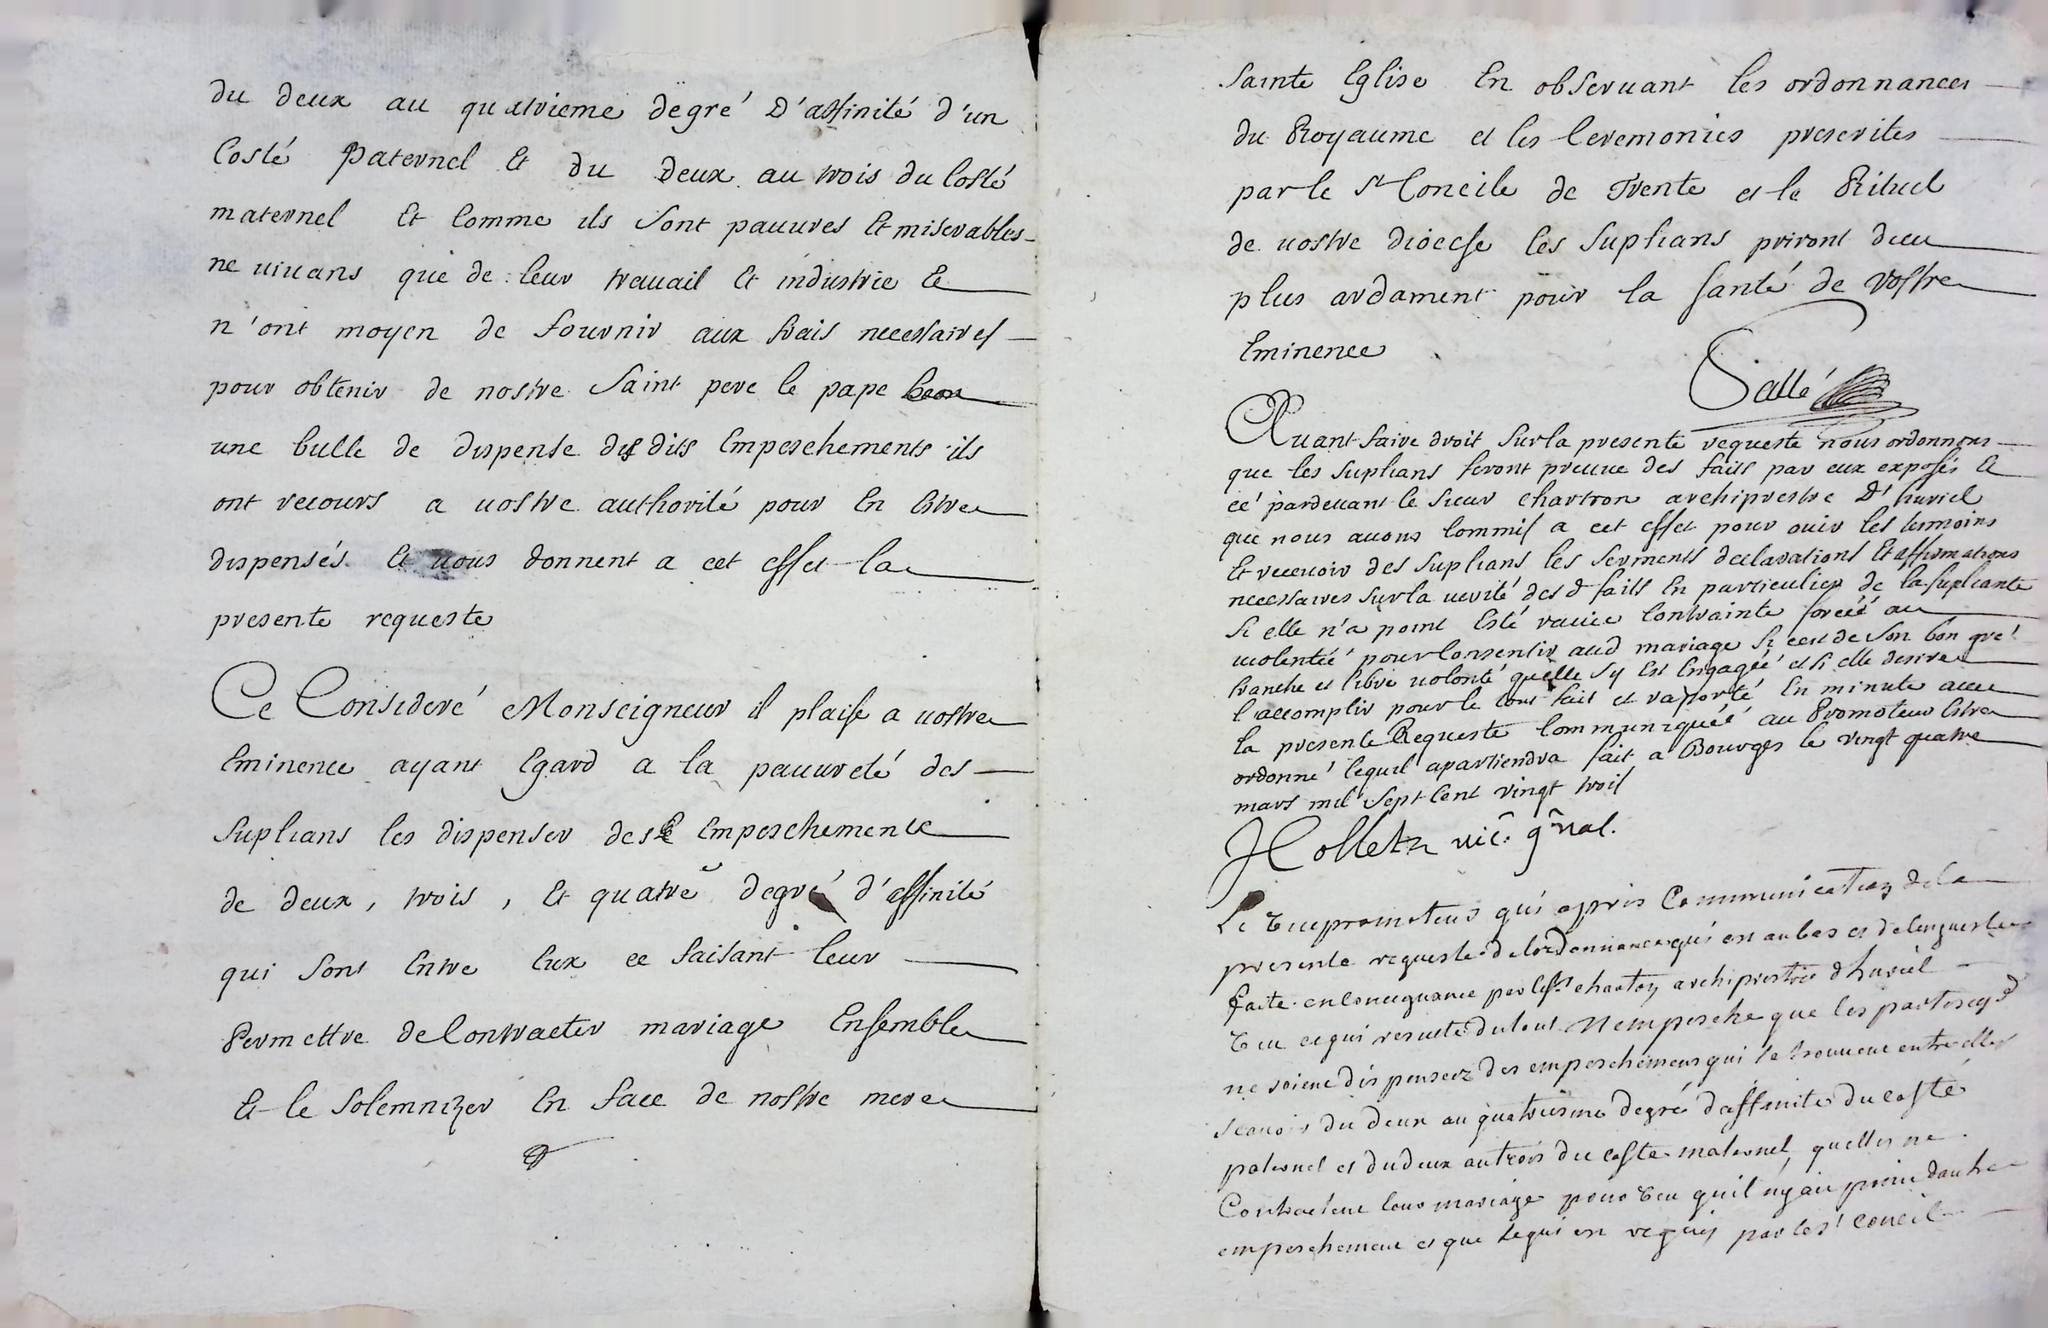 du deux au quatrieme dégré D'affinité d'un
Costé paternel Et du deux au trois du Costé
maternel Et Comme ils sont pauures Et miserables
ne uiuans que de leur trauail Et industrie Et
n'ont moyen de fournir aux frais necessaires
pour obtenir de nostre Saint pere le pape
une bulle de dispense des dits Empeschements ils
ont recours a uostre authorité pour En Estre
dispensés Et uous donnent a cet effet la
presente requeste
Ce Consideré Monseigneur il plaise a uostre
Eminence ayant Egard a la pauureté des
suplians les dispenser des Empeschements
de deux, trois, Et quatre degré d'affinité
qui sont Entre Eux ce faisant leur
Permettre de Contracter mariage Ensemble
Et le solemnizer En face de nostre mere
Sainte Eglise En obseruant les ordonnances
du Royaume et les Ceremonies prescrites
par le St Concile de Trente et le Rituel
de uostre diocese les suplians priront dieu
plus ardament pour la santé de Vostre
Eminence
Sallé
Auant faire droit sur la presente requeste nous ordonnons
que les suplians feront preuue des faits par eux exposés Et
ce pardeuant le sieur Chartron archiprestre D'huriel
que nous auons Commis a cet effet pour ouir les temoins
Et receuoir des suplians les serments declarations Et affirmations
necessaires sur la uerité desd faits En particulier de la supliante
si elle n'a point Esté rauie Contrainte forcéé ou
uiolentéé pour Consentir aud mariage si cest de son bon gré
franche et libre uolonté quelle s'y Est Engagéé et si elle desire
l'accomplir pour le tout fait et raporté En minute auec
la presente Requeste Communiquéé au Promoteur Estre
ordonné lequel apartiendra fait a Bourges le vingt quatre
mars mil sept Cent vingt trois
Collet uic. gnal.
Le uicepromoteur qui a pris Communication de la
presente requeste de lordonnance qui est au bas et de lenqueste
faite en Consequance par le Sr Chartron archiprestre d'huriel
Veu ce qui resulte du tout Nempesche que les parties
ne soient dispenseez des empeschemens qui se trouuent entre elles
scauoir du deux au quatriesme degré d'affinité du costé
paternel et du deux au trois du costé maternel quelles ne
Contractent leur mariage pourueu quil n'y ait point dautre
empeschement et que ce qui est requis par le St Concile